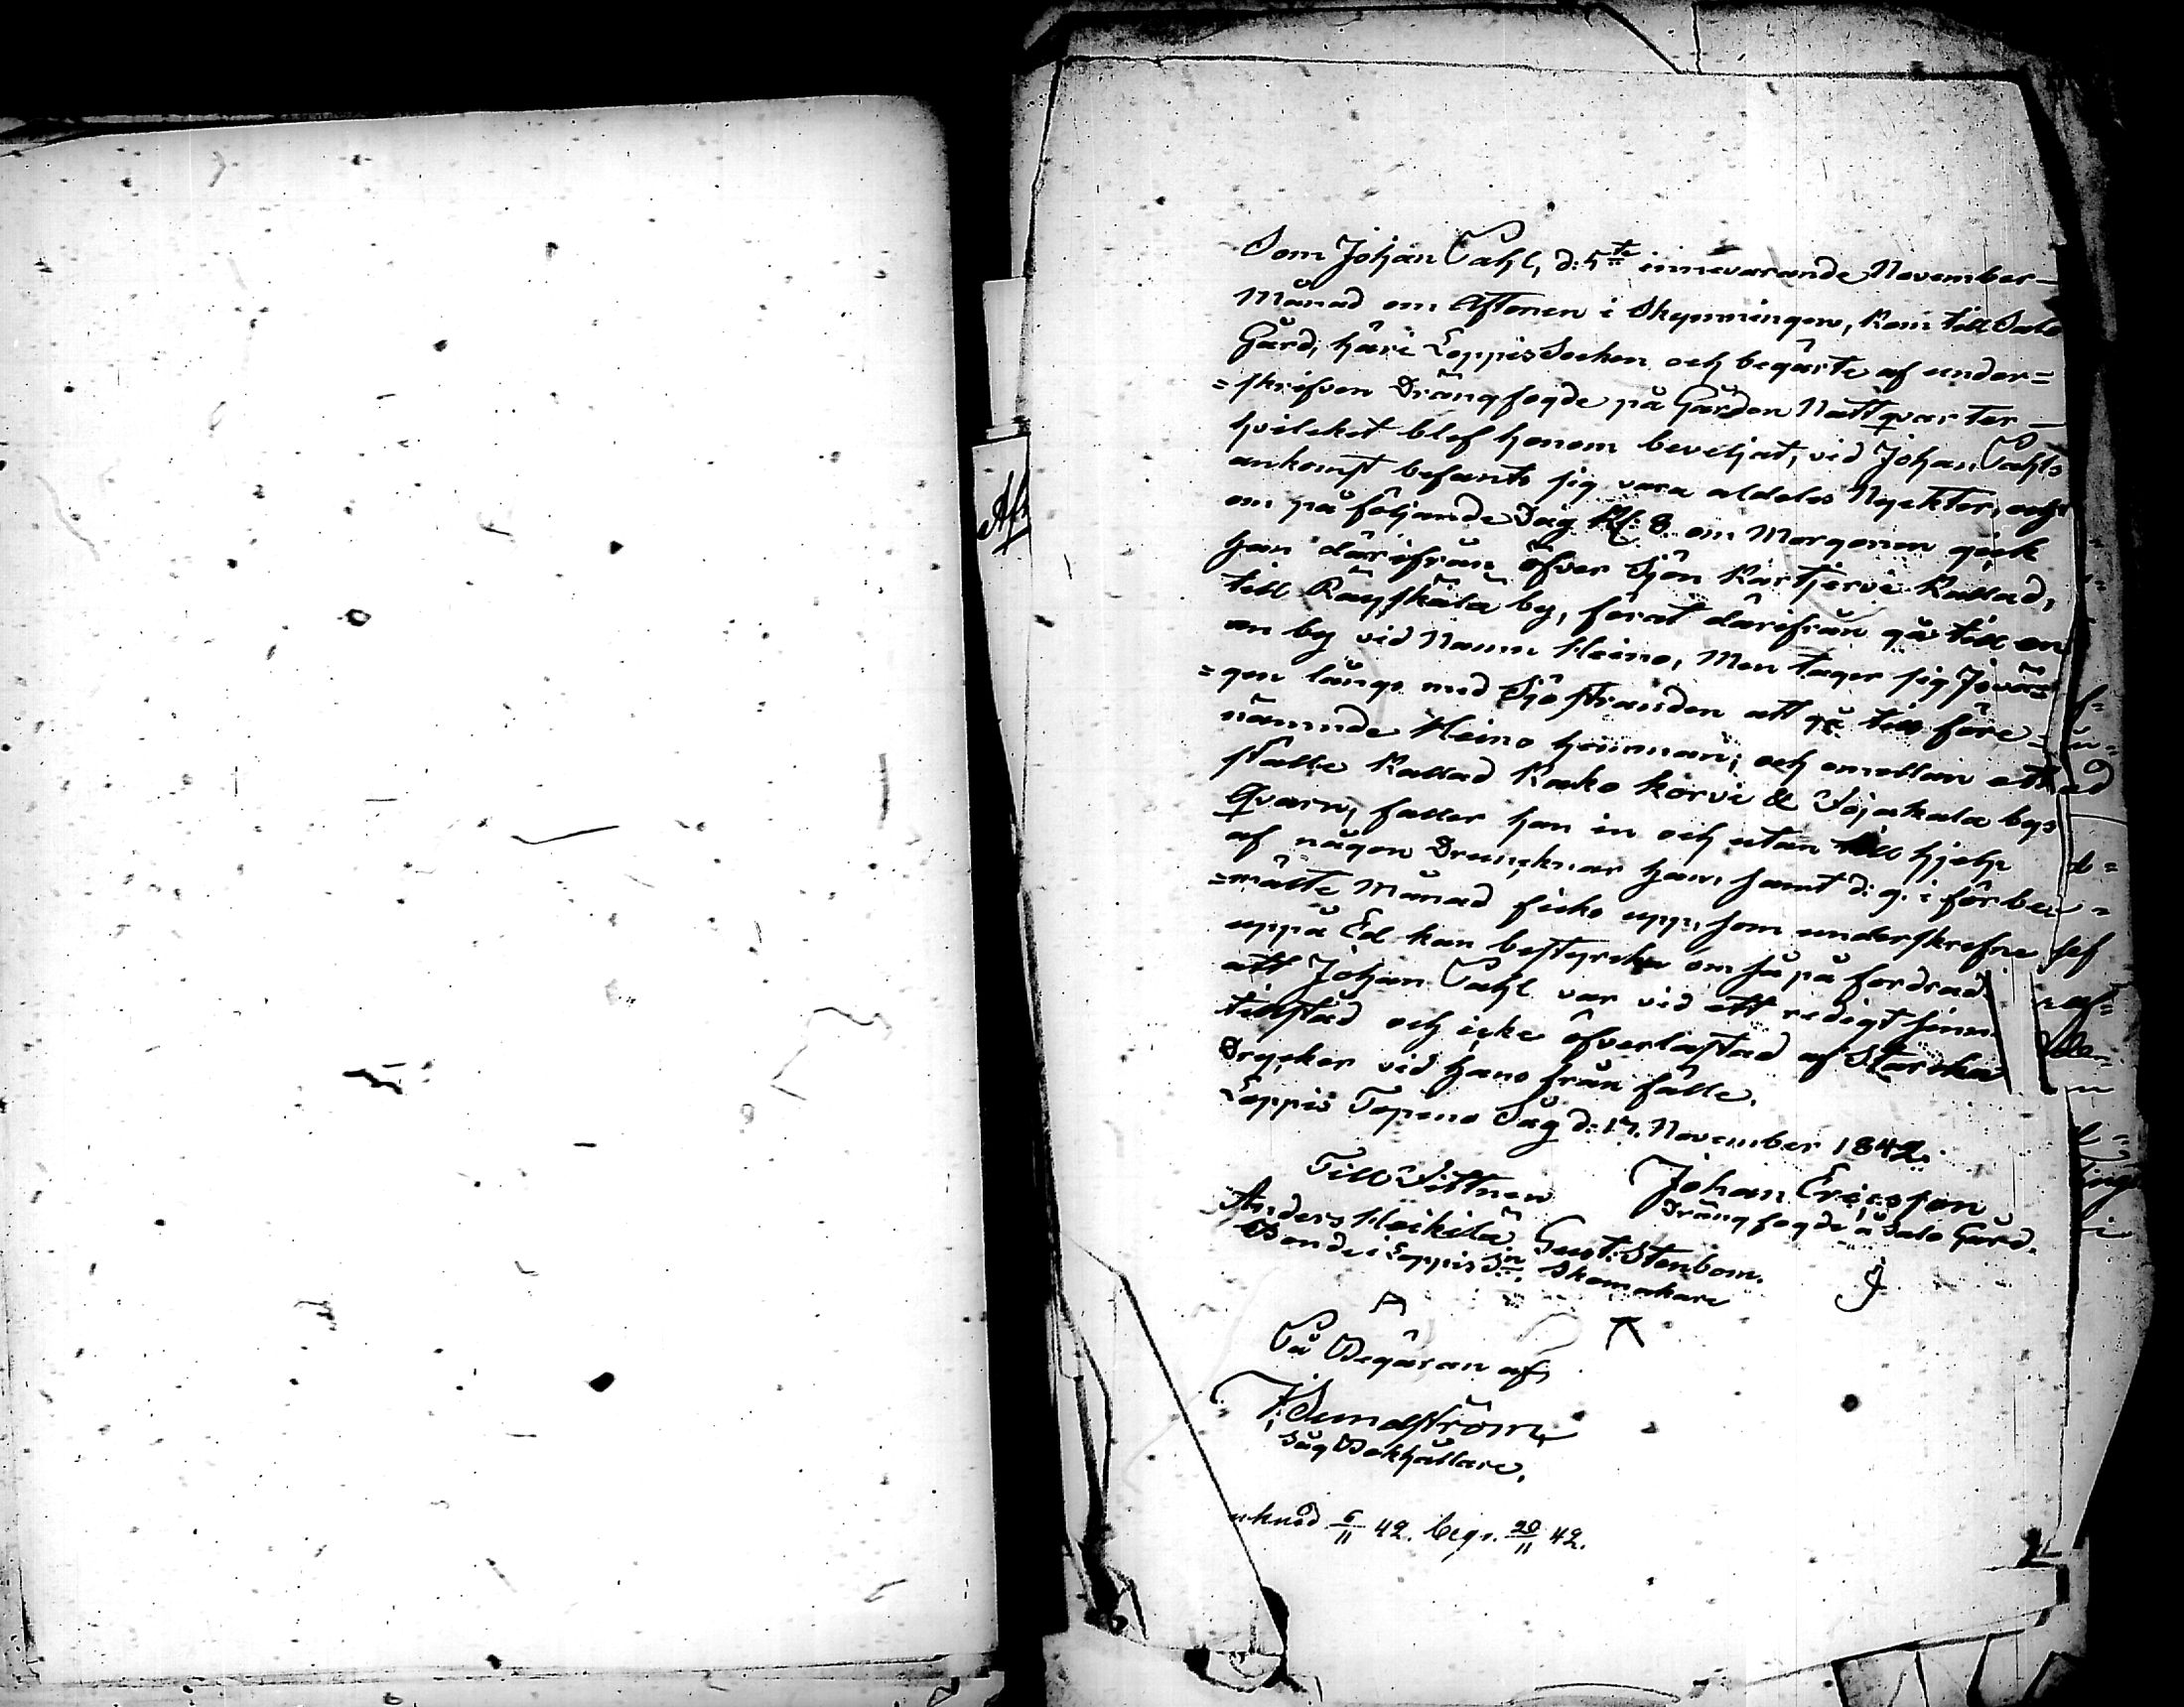 Som Johan Dahl, d: 5te innevarande November
Månad om Aftonen i Skymningen, kom till Salo
Gård, här i Loppis Socken och begärte af under=
=skrifven Drängfogde på Gården Nattqvarter
hvilcket blef honom beviljat, vid Johan Dahls
ankomst befants sig vara aldeles Nyckter, och
om på följande Dag Kl: 8 om Morgonen gick
han därifrån öfver Sjön Kartjervi Kallad,
till Räyskälä by, förat därifrån gå till en
an by vid Namn Heino, Men tager sig Jsvä=
=gen längs med Sjöstranden att gå till före=
nämnde Heino hemman; och emellan ett
ställe Kallad Kako körvi & Jojakala bys
Qvarn, faller han in och utan till hjelp
af någon Druncknar han, samt d: 9. i förbe=
=mälte Månad ficks upp, som underskrefne
uppå Ed kan bestyrcka om så på fordrad
att Johan Dahl var vid ett redigt sinn
tillstäd och icke öfverlastad af Starcka
Drycker vid hans från fälle.
Loppis Topeno Såg d: 17. November 1842.
Till Vittnen
Johan Ericsson
Drängfogde å Salo Gård.
Anders Heikilä Gust: Stenbom.
Bonde i Loppis Sn: Skomakare
På Begäran af
J: Sundström
Såg Bokhållare.
uknad 6/11 42. begr. 20/11 42.